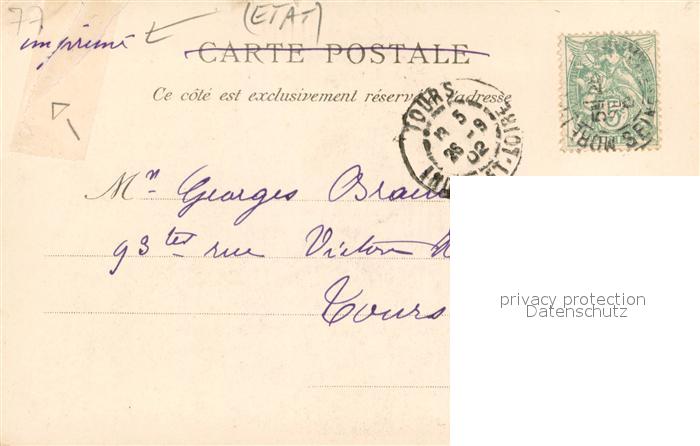 77
(ETAT)
imprimé
CARTE POSTALE
Ce côté est exclusivement réservé l'adresse
TOURS
5
26 - 9
02
INDRE-ET-LOIRE
MORET
SEINE
5
Mr. Georges
93 ter rue Victor
Tours
privacy protection
Datenschutz